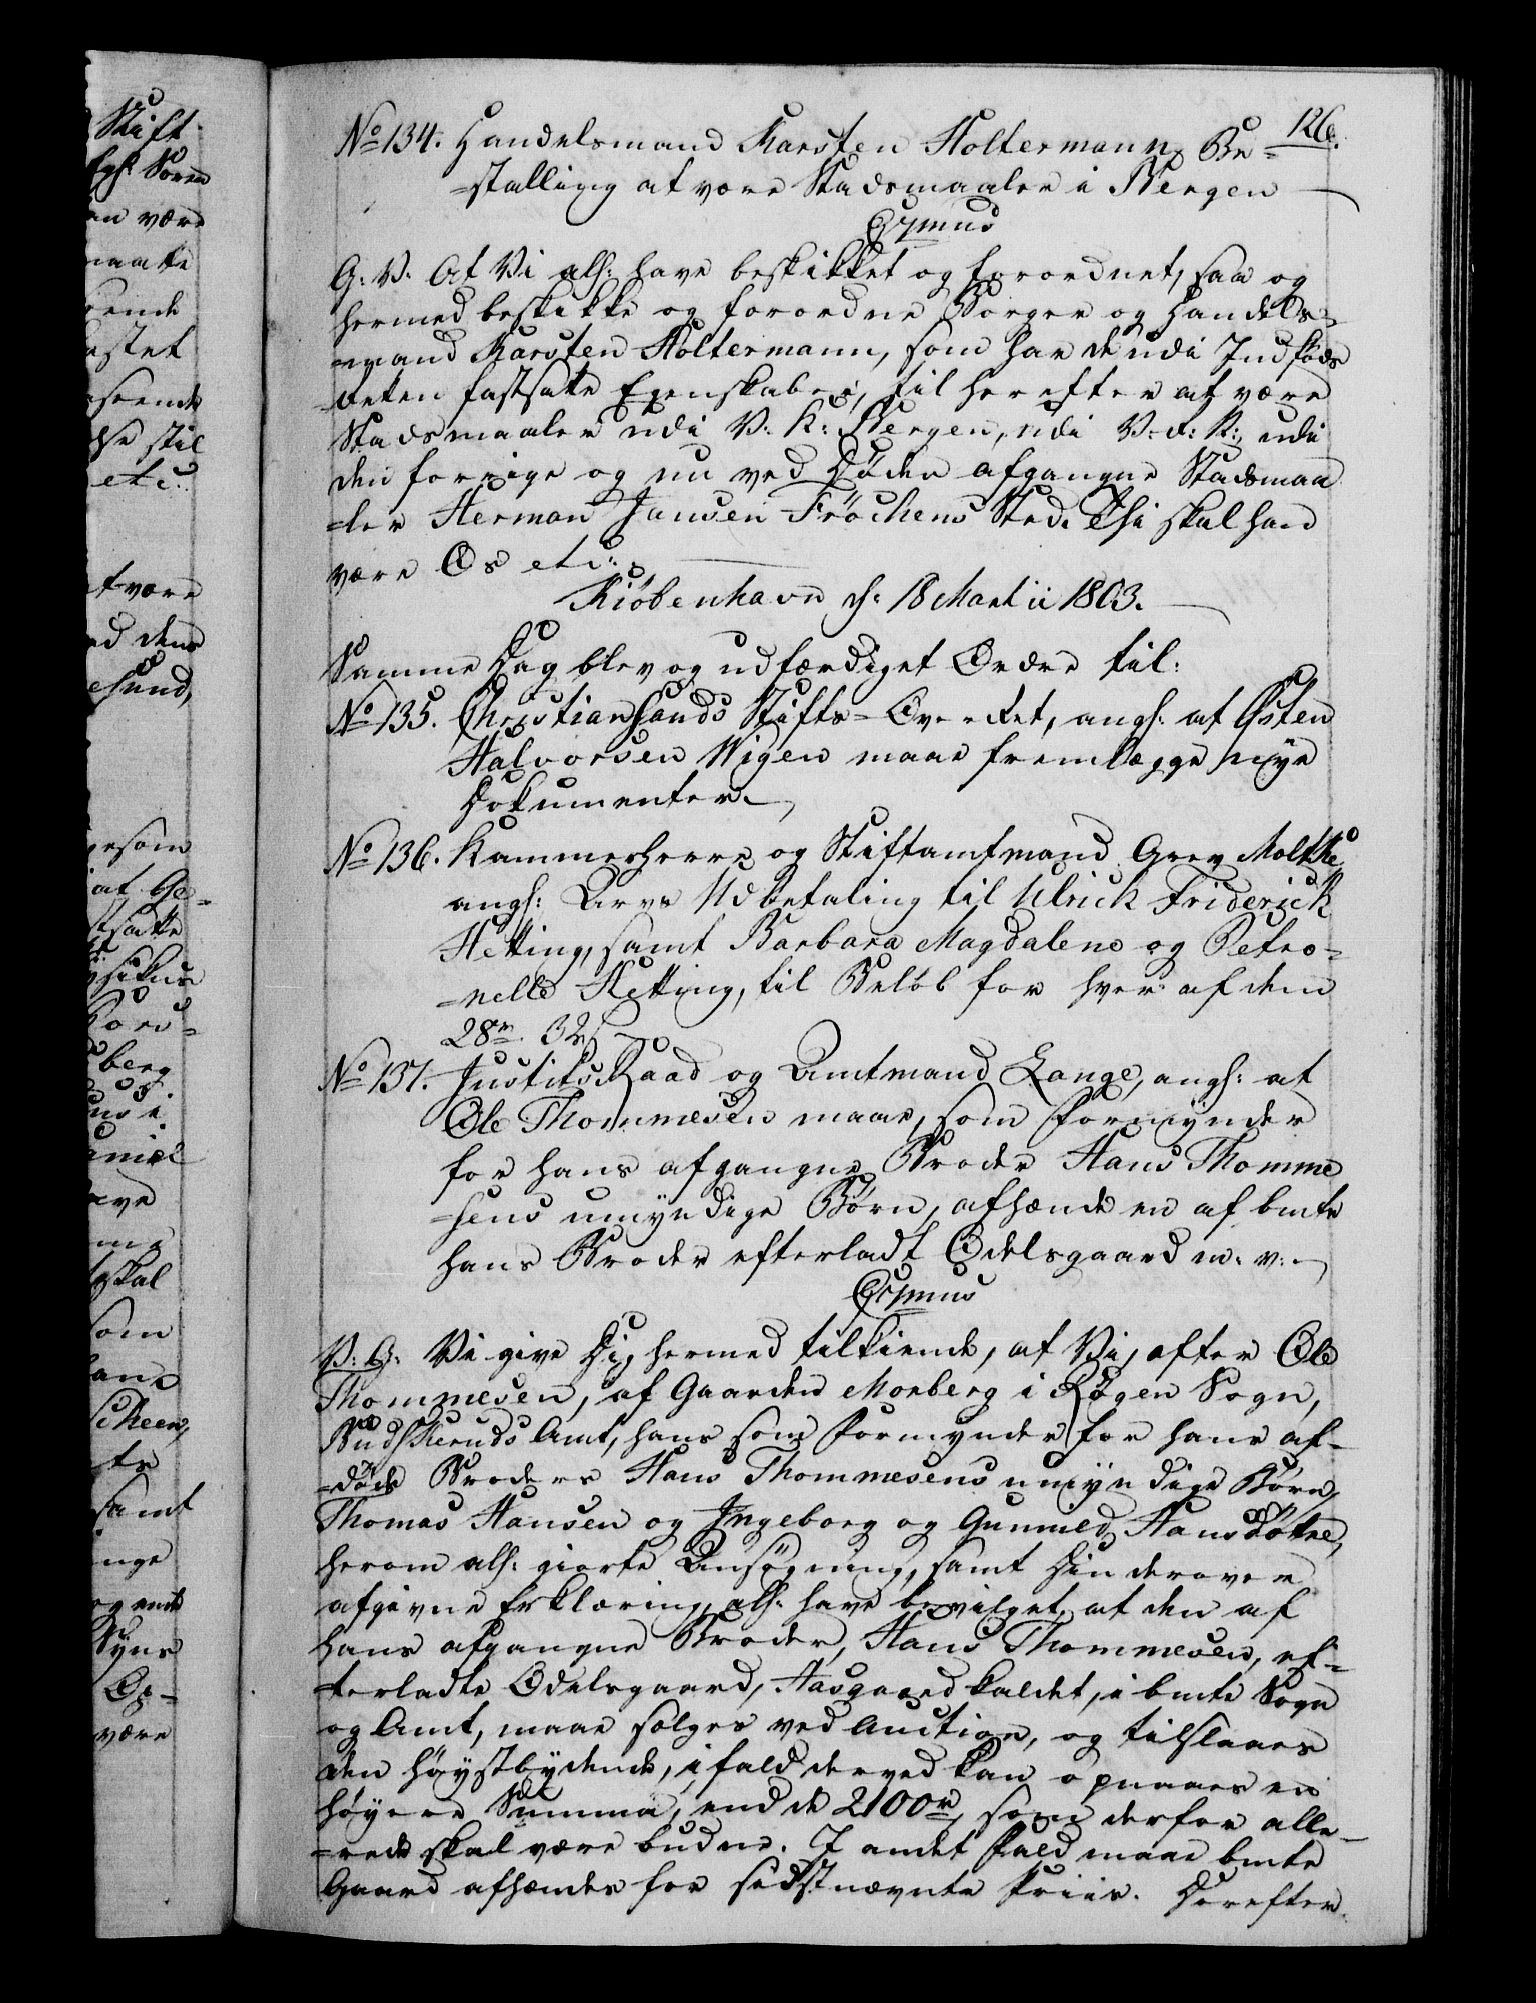 126.
No 134. Handelsmand Karsten Holtermann Be=
=stalling at være Stadsmaaler i Bergen
G: V: At Vi alf: have beskikket og forordnet, saa og
hermed beskikke og forordne Borger og Handels=
=mand Karsten Holtermann, som har de udi Indføds
=retten fastsatte Egenskaber, til herefter at være
Stadsmaaler udi V: K: Bergen, udi V: d: R:, udi
den forrige og nu ved Døden afgangne Stadsmaa
=ler Herman Jansen Frøchens Sted. Thi skal han
være Os etc:
Kiøbenhavn d: 18 Martii 1803.
Samme Dag blev og udfærdiget Ordre til:
No 135. Christiansands Stifts=Øvrighet, angl: at Østen
Halvorsen Wigen maae fremlægge nye
Dokumenter.
No 136. Kammerherre og Stiftamtmand Grev Moltke
angl: Arve Udbetaling til Ulrick Friderick
Hetting, samt Barbara Magdalene og Petro=
=nelle Hetting, til Beløb for hver af dem
28 rd. 32 s
No 137. JustitsRaad og Amtmand Lange, angl: at
Ole Thommesen maae, som Formynder
for hans afgangne Broder Hans Thomme
=sens umyndige Børn, afhænde en af bmte
hans Broder efterladt Odelsgaard m: v:
V: G: Vi give Dig hermed tilkiende, at Vi, efter Ole
Thommesen, af Gaarden Morberg i Røgen Sogn,
Budskeruds Amt, hans som Formynder for hans af=
=døde Broders Hans Thommesens umyndige Børn,
Thomas Hansen og Ingeborg og Gunnild Hansdøttre,
herom alf: giorte Ansøgning, samt Din derover
afgivne Erklæring, alf: have bevilget, at den af
hans afgangne Broder, Hans Thommesen, ef=
=terladte Odelsgaard, Aasgaard kaldet, i bmte Sogn
og Amt, maae sælges ved Auction, og tilslaaes
den høystbydende, ifald derved kan opnaaes en
høyere Summa, end de 2100 rd, som derfor alle=
=rede skal være budne. I andet Fald maae bmte
Gaard afhændes for sidstnævnte Priis. Derefter